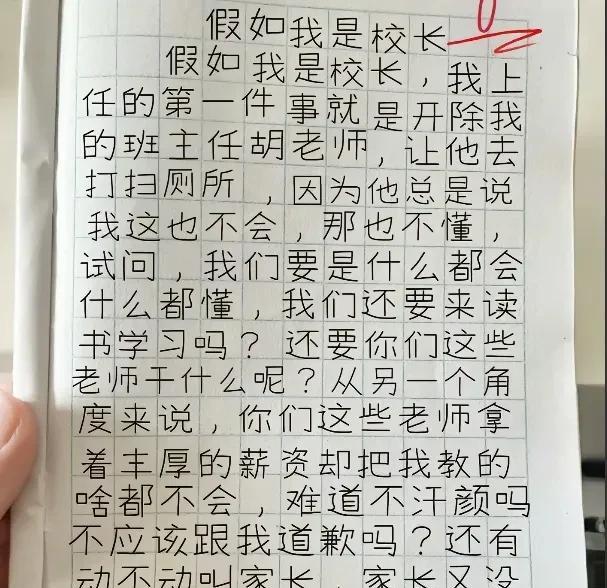 假如我是校长
假如我是校长，我上
任的第一件事就是开除我
的班主任胡老师，让他去
打扫厕所，因为他总是说
我这也不会，那也不懂，
试问，我们要是什么都会
什么都懂，我们还要来读
书学习吗？还要你们这些
老师干什么呢？从另一个角
度来说，你们这些老师拿
着丰厚的薪资却把我教的
啥都不会，难道不汗颜吗
不应该跟我道歉吗？还有
动不动叫家长，家长又没